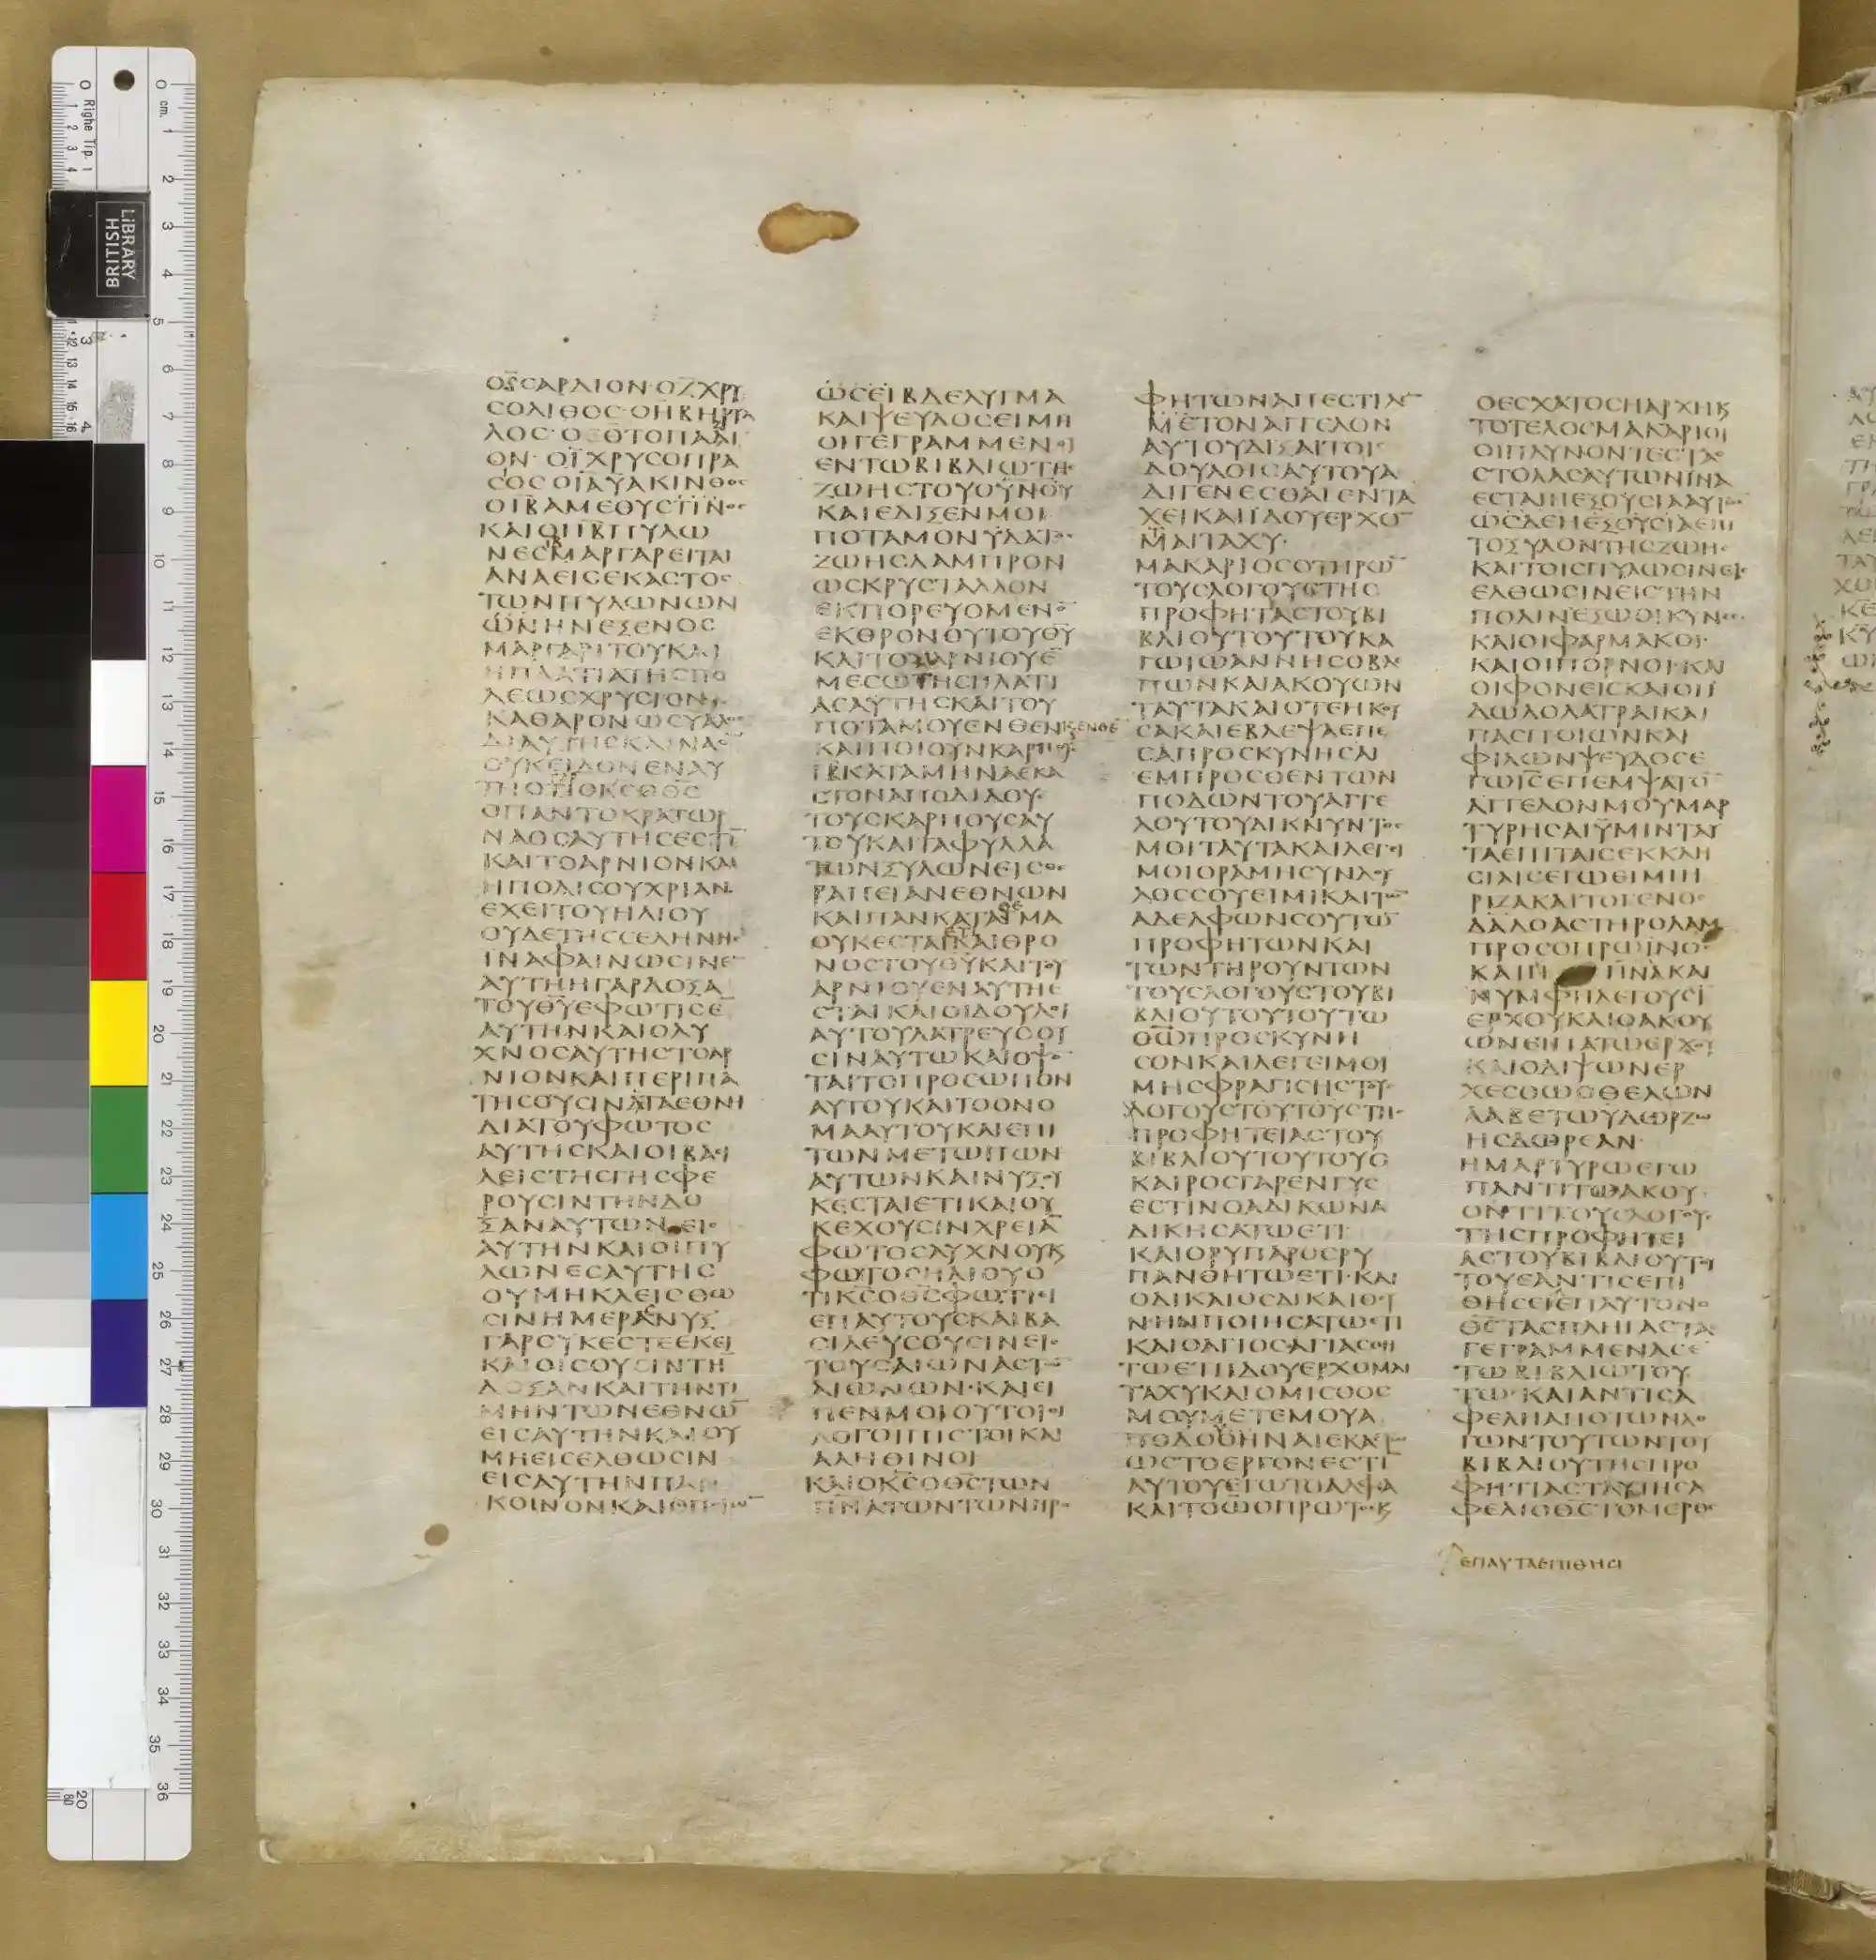 ΟϚϹΑΡΔΙΟΝ·ΟΖΧΡΥ
ϹΟΛΙΘΟϹ·ΟΗΒΗΡΥΛ
ΛΟϹ·ΟΘΟΤΟΠΑΔΙ
ΟΝ·ΟΙΧΡΥϹΟΠΡΑ
ϹΟϹΟΙΑΥΑΚΙΝΘΟϹ
ΟΙΒΑΜΕΘΥϹΤΙΝΟϹ
ΚΑΙΟΙΙΒΠΥΛΩ
ΝΕϹΙΒΜΑΡΓΑΡΕΙΤΑΙ
ΑΝΑΕΙϹΕΚΑϹΤΟϹ
ΤΩΝΠΥΛΩΝΩΝ
ΩΝΗΝΕΞΕΝΟϹ
ΜΑΡΓΑΡΙΤΟΥΚΑΙ
ΗΠΛΑΤΙΑΤΗϹΠΟ
ΛΕΩϹΧΡΥϹΙΟΝ
ΚΑΘΑΡΟΝΩϹΥΑΛΟϹ
ΔΙΑΥΓΗϹΚΑΙΝΑΟ̅
ΟΥΚΕΙΔΟΝΕΝΑΥ
ΤΗΟΤΙΟΚ̅Ϲ̅ΟΘ̅Ϲ̅
ΟΠΑΝΤΟΚΡΑΤΩΡ
ΝΑΟϹΑΥΤΗϹΕϹΤΙ̅
ΚΑΙΤΟΑΡΝΙΟΝΚΑΙ
ΗΠΟΛΙϹΟΥΧΡΙΑΝ
ΕΧΕΙΤΟΥΗΛΙΟΥ
ΟΥΔΕΤΗϹϹΕΛΗΝΗϹ
ΙΝΑΦΑΙΝΩϹΙΝΕ̅
ΑΥΤΗΗΓΑΡΔΟΞΑ
ΤΟΥΘ̅Υ̅ΕΦΩΤΙϹΕ̅
ΑΥΤΗΝΚΑΙΟΛΥ
ΧΝΟϹΑΥΤΗϹΤΟΑΡ
ΝΙΟΝΚΑΙΠΕΡΙΠΑ
ΤΗϹΟΥϹΙΝΤΑΕΘΝΗ
ΔΙΑΤΟΥΦΩΤΟϹ
ΑΥΤΗϹΚΑΙΟΙΒΑϹΙ
ΛΕΙϹΤΗϹΓΗϹΦΕ
ΡΟΥϹΙΝΤΗΝΔΟ
ΞΑΝΑΥΤΩΝΕΙϹ
ΑΥΤΗΝΚΑΙΟΙΠΥ
ΛΩΝΕϹΑΥΤΗϹ
ΟΥΜΗΚΛΕΙϹΘΩ
ϹΙΝΗΜΕΡΑϹΝΥΞ
ΓΑΡΟΥΚΕϹΤΕΕΚΕΙ
ΚΑΙΟΙϹΟΥϹΙΝΤΗ
ΔΟΞΑΝΚΑΙΤΗΝΤΙ
ΜΗΝΤΩΝΕΘΝΩ̅
ΕΙϹΑΥΤΗΝΚΑΙΟΥ
ΜΗΕΙϹΕΛΘΩϹΙΝ
ΕΙϹΑΥΤΗΝΠΑΝ
ΚΟΙΝΟΝΚΑΙΟΠΟΙΩ̅
ΩϹΕΙΒΔΕΛΥΓΜΑ
ΚΑΙΨΕΥΔΟϹΕΙΜΗ
ΟΙΓΕΓΡΑΜΜΕΝΟΙ
ΕΝΤΩΒΙΒΛΙΩΤΗϹ
ΖΩΗϹΤΟΥΟΥΝΟΥ
ΚΑΙΕΔΙΞΕΝΜΟΙ
ΠΟΤΑΜΟΝΥΔΑΤΟϹ
ΖΩΗϹΛΑΜΠΡΟΝ
ΩϹΚΡΥϹΤΑΛΛΟΝ
ΕΚΠΟΡΕΥΟΜΕΝΟ̅
ΕΚΘΡΟΝΟΥΤΟΥΘ̅Υ̅
ΚΑΙΤΟΥΑΡΝΙΟΥΕ̅
ΜΕϹΩΤΗϹΠΛΑΤΙ
ΑϹΑΥΤΗϹΚΑΙΤΟΥ
ΠΟΤΑΜΟΥΕΝΘΕΝϏΕΝΘΕ̅
ΚΑΙΠΟΙΟΥΝΚΑΡΠΟΥϹ
ΙΒΚΑΤΑΜΗΝΑΕΚΑ
ϹΤΟΝΑΠΟΔΙΔΟΥϹ
ΤΟΥϹΚΑΡΠΟΥϹΑΥ
ΤΟΥΚΑΙΤΑΦΥΛΛΑ
ΤΩΝΞΥΛΩΝΕΙϹΘΕ
ΡΑΠΕΙΑΝΕΘΝΩΝ
ΚΑΙΠΑΝΚΑΤΑΘΕΜΑ
ΟΥΚΕϹΤΑΙΕΤΙΚΑΙΘΡΟ
ΝΟϹΤΟΥΘ̅Υ̅ΚΑΙΤΟΥ
ΑΡΝΙΟΥΕΝΑΥΤΗΕ
ϹΤΑΙΚΑΙΟΙΔΟΥΛΟΙ
ΑΥΤΟΥΛΑΤΡΕΥϹΟΥ
ϹΙΝΑΥΤΩΚΑΙΟΨΟ̅
ΤΑΙΤΟΠΡΟϹΩΠΟΝ
ΑΥΤΟΥΚΑΙΤΟΟΝΟ
ΜΑΑΥΤΟΥΚΑΙΕΠΙ
ΤΩΝΜΕΤΩΠΩΝ
ΑΥΤΩΝΚΑΙΝΥΞΟΥ
ΚΕϹΤΑΙΕΤΙΚΑΙΟΥ
ΚΕΧΟΥϹΙΝΧΡΕΙΑ̅
ΦΩΤΟϹΛΥΧΝΟΥϏ
ΦΩΤΟϹΗΛΙΟΥΟ
ΤΙΚ̅Ϲ̅ΟΘ̅Ϲ̅ΦΩΤΙΕΙ
ΕΠΑΥΤΟΥϹΚΑΙΒΑ
ϹΙΛΕΥϹΟΥϹΙΝΕΙϹ
ΤΟΥϹΑΙΩΝΑϹΤΩ̅
ΑΙΩΝΩΝ·ΚΑΙΕΙ
ΠΕΝΜΟΙΟΥΤΟΙΟΙ
ΛΟΓΟΙΠΙϹΤΟΙΚΑΙ
ΑΛΗΘΙΝΟΙ
ΚΑΙΟΚ̅Ϲ̅ΟΘ̅Ϲ̅ΤΩΝ
Π̅Ν̅ΑΤΩΝΤΩΝΠΡΟ
ΦΗΤΩΝΑΠΕϹΤΙΛΕ̅
ΜΕΤΟΝΑΓΓΕΛΟΝ
ΑΥΤΟΥΔΙΞΑΙΤΟΙϹ
ΔΟΥΛΟΙϹΑΥΤΟΥΑ
ΔΙΓΕΝΕϹΘΑΙΕΝΤΑ
ΧΕΙΚΑΙΙΔΟΥΕΡΧΟ
ΜΑΙΤΑΧΥ·
ΜΑΚΑΡΙΟϹΟΤΗΡΩ̅
ΤΟΥϹΛΟΓΟΥϹΤΗϹ
ΠΡΟΦΗΤΑϹΤΟΥΒΙ
ΒΛΙΟΥΤΟΥΤΟΥΚΑ
ΓΩΙΩΑΝΝΗϹΟΒΛΕ
ΠΩΝΚΑΙΑΚΟΥΩΝ
ΤΑΥΤΑΚΑΙΟΤΕΗΚΟΥ
ϹΑΚΑΙΕΒΛΕΨΑΕΠΕ
ϹΑΠΡΟϹΚΥΝΗϹΑΙ
ΕΜΠΡΟϹΘΕΝΤΩΝ
ΠΟΔΩΝΤΟΥΑΓΓΕ
ΛΟΥΤΟΥΔΙΚΝΥΝΤΟϹ
ΜΟΙΤΑΥΤΑΚΑΙΛΕΓΕΙ
ΜΟΙΟΡΑΜΗϹΥΝΔΟΥ
ΛΟϹϹΟΥΕΙΜΙΚΑΙΤΩ̅
ΑΔΕΛΦΩΝϹΟΥΤΩ̅
ΠΡΟΦΗΤΩΝΚΑΙ
ΤΩΝΤΗΡΟΥΝΤΩΝ
ΤΟΥϹΛΟΓΟΥϹΤΟΥΒΙ
ΒΛΙΟΥΤΟΥΤΟΥΤΩ
ΘΩ̅ΠΡΟϹΚΥΝΗ
ϹΟΝΚΑΙΛΕΓΕΙΜΟΙ
ΜΗϹΦΡΑΓΙϹΗϹΤΟΥϹ
ΛΟΓΟΥϹΤΟΥΤΟΥϹΤΗϹ
ΠΡΟΦΗΤΕΙΑϹΤΟΥ
ΒΙΒΛΙΟΥΤΟΥΤΟΥΟ
ΚΑΙΡΟϹΓΑΡΕΝΓΥϹ
ΕϹΤΙΝΟΑΔΙΚΩΝΑ
ΔΙΚΗϹΑΤΩΕΤΙ
ΚΑΙΟΡΥΠΑΡΟϹΡΥ
ΠΑΝΘΗΤΩΕΤΙ·ΚΑΙ
ΟΔΙΚΑΙΟϹΔΙΚΑΙΟϹΥ
ΝΗΝΠΟΙΗϹΑΤΩΕΤΙ
ΚΑΙΟΑΓΙΟϹΑΓΙΑϹΘΗ
ΤΩΕΤΙΙΔΟΥΕΡΧΟΜΑΙ
ΤΑΧΥΚΑΙΟΜΙϹΘΟϹ
ΜΟΥΜΕΤΕΜΟΥΑ
ΠΟΔΟΘΗΝΑΙΕΚΑϹΤΩ
ΩϹΤΟΕΡΓΟΝΕϹΤΙ̅
ΑΥΤΟΥΕΓΩΤΟΑΛΦΑ
ΚΑΙΤΟΩΟΠΡΩΤΟϹϏ
ΟΕϹΧΑΤΟϹΗΑΡΧΗϏ
ΤΟΤΕΛΟϹΜΑΚΑΡΙΟΙ
ΟΙΠΛΥΝΟΝΤΕϹΤΑϹ
ϹΤΟΛΑϹΑΥΤΩΝΙΝΑ
ΕϹΤΑΙΗΕΞΟΥϹΙΑΑΥΤΩ̅
ΤΟΞΥΛΟΝΤΗϹΖΩΗϹ
ΚΑΙΤΟΙϹΠΥΛΩϹΙΝΕΙϹ
ΕΛΘΩϹΙΝΕΙϹΤΗΝ
ΠΟΛΙΝΕΞΩΟΙΚΥΝΕϹ
ΚΑΙΟΙΦΑΡΜΑΚΟΙ·
ΚΑΙΟΙΠΟΡΝΟΙ·ΚΑΙ
ΟΙΦΟΝΕΙϹΚΑΙΟΙΙ
ΔΩΛΟΛΑΤΡΑΙΚΑΙ
ΠΑϹΠΟΙΩΝΚΑΙ
ΦΙΛΩΝΨΕΥΔΟϹΕ
ΓΩΙ̅Ϲ̅ΕΠΕΜΨΑΤΟ̅
ΑΓΓΕΛΟΝΜΟΥΜΑΡ
ΤΥΡΗϹΑΙΥΜΙΝΤΑΥ
ΤΑΕΠΙΤΑΙϹΕΚΚΛΗ
ϹΙΑΙϹΕΓΩΕΙΜΙΗ
ΡΙΖΑΚΑΙΤΟΓΕΝΟϹ
ΔΑΔΟΑϹΤΗΡΟΛΑΜ
ΠΡΟϹΟΠΡΩΙΝΟϹ
ΚΑΙΠ̅Ν̅ΑΚΑΙ
ΝΥΜΦΗΛΕΓΟΥϹΙ̅
ΕΡΧΟΥΚΑΙΟΑΚΟΥ
ΩΝΕΙΠΑΤΩΕΡΧΟΥ
ΚΑΙΟΔΙΨΩΝΕΡ
ΧΕϹΘΩΟΘΕΛΩΝ
ΛΑΒΕΤΩΥΔΩΡΖΩ
ΗϹΔΩΡΕΑΝ·
ΜΑΡΤΥΡΩΕΓΩ
ΠΑΝΤΙΤΩΑΚΟΥ
ΟΝΤΙΤΟΥϹΛΟΓΟΥϹ
ΤΗϹΠΡΟΦΗΤΕΙ
ΑϹΤΟΥΒΙΒΛΙΟΥΤΟΥ
ΤΟΥΕΑΝΤΙϹΕΠΙ
ΘΗϹΕΙΕΠΑΥΤΟΝΟ
Θ̅Ϲ̅ΤΑϹΠΛΗΓΑϹΤΑϹ
ΓΕΓΡΑΜΜΕΝΑϹΕ̅
ΤΩΒΙΒΛΙΩΤΟΥ
ΤΩ·ΚΑΙΑΝΤΙϹΑ
ΦΕΛΗΑΠΟΤΩΝΛΟ
ΓΩΝΤΟΥΤΩΝΤΟΥ
ΒΙΒΛΙΟΥΤΗϹΠΡΟ
ΦΗΤΙΑϹΤΑΥΤΗϹΑ
ΦΕΛΙΟΘ̅Ϲ̅ΤΟΜΕΡΟϹ
ΕΠΑΥΤΑΕΠΙΘΗϹΙ
LIBRARY
BRITISH